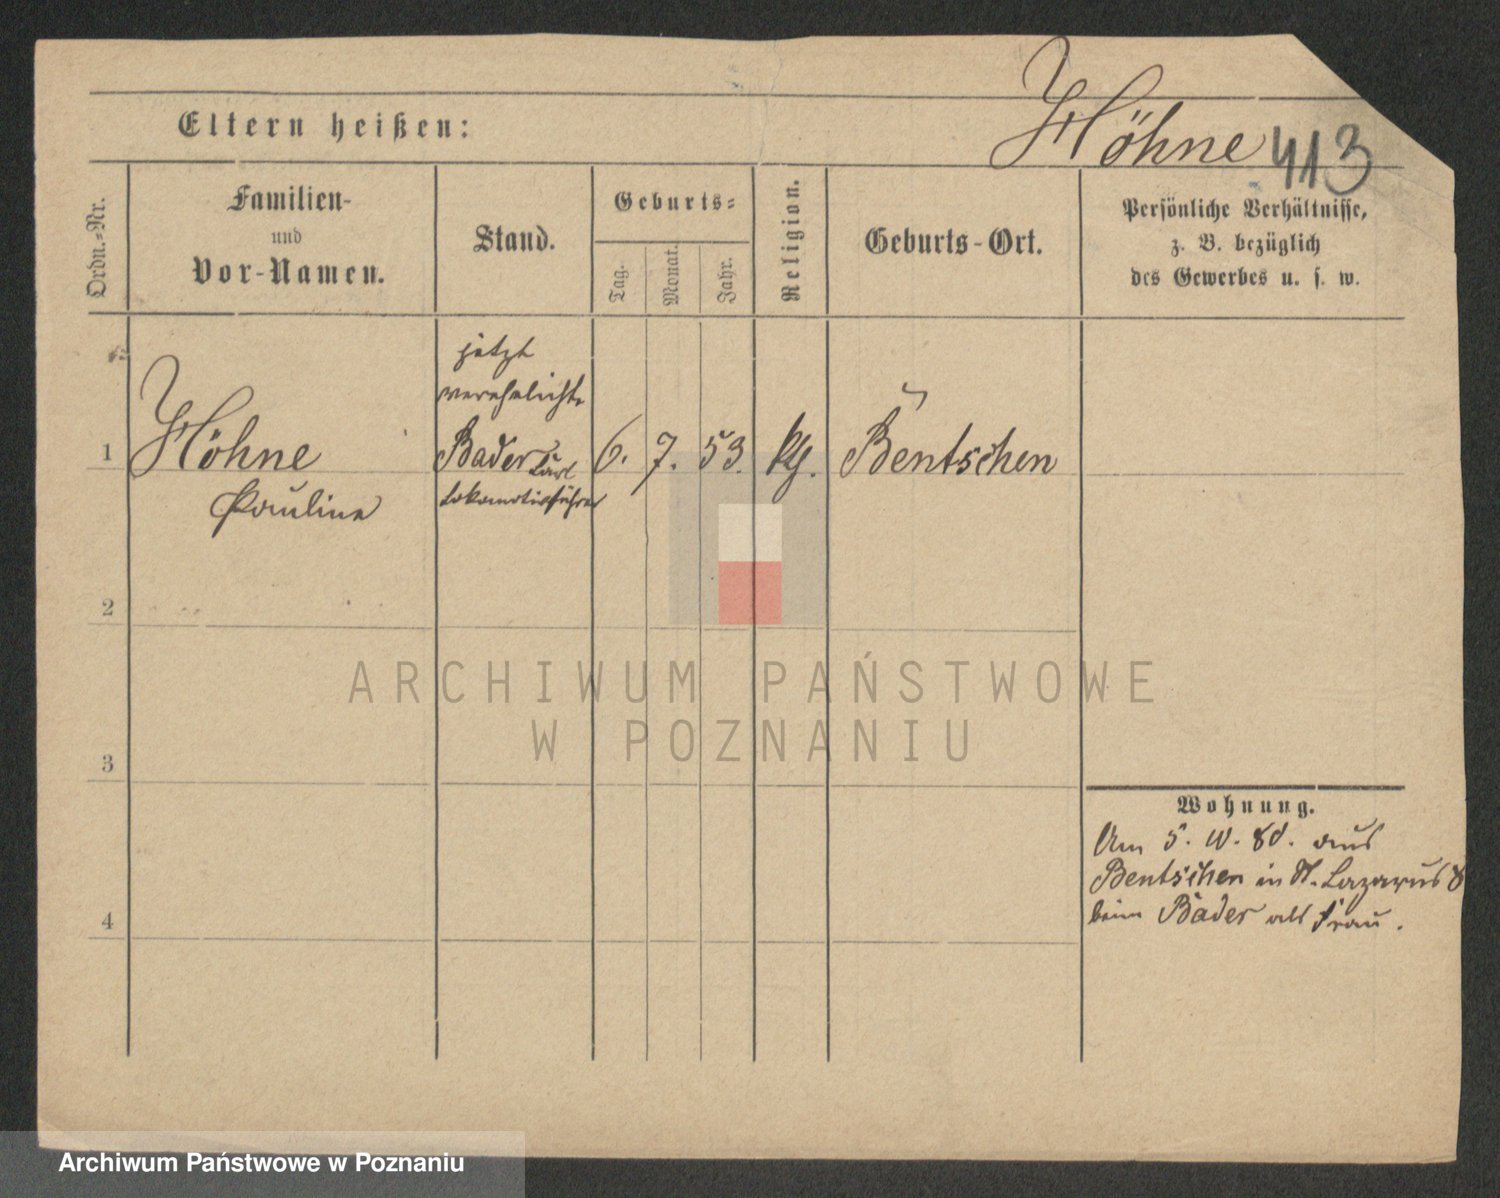 Höhne 413
Eltern heißen:
Ordn.-Nr.
Familien-
und
Vor-Namen.
Stand.
Geburts-
Tag.
Monat.
Jahr.
Religion.
Geburts-Ort.
Persönliche Verhältnisse,
z. B. bezüglich
des Gewerbes u. s. w.
jetzt
verehelichte
1 Höhne Bader Carl 6. 7. 53. Bentschen
Pauline Lokomotivführer
2
3
4
Wohnung.
Am 5. 10. 8d. aus
Bentschen in St. Lazarus 8
beim Bader als Frau.
ARCHIWUM PAŃSTWOWE
W POZNANIU
Archiwum Państwowe w Poznaniu